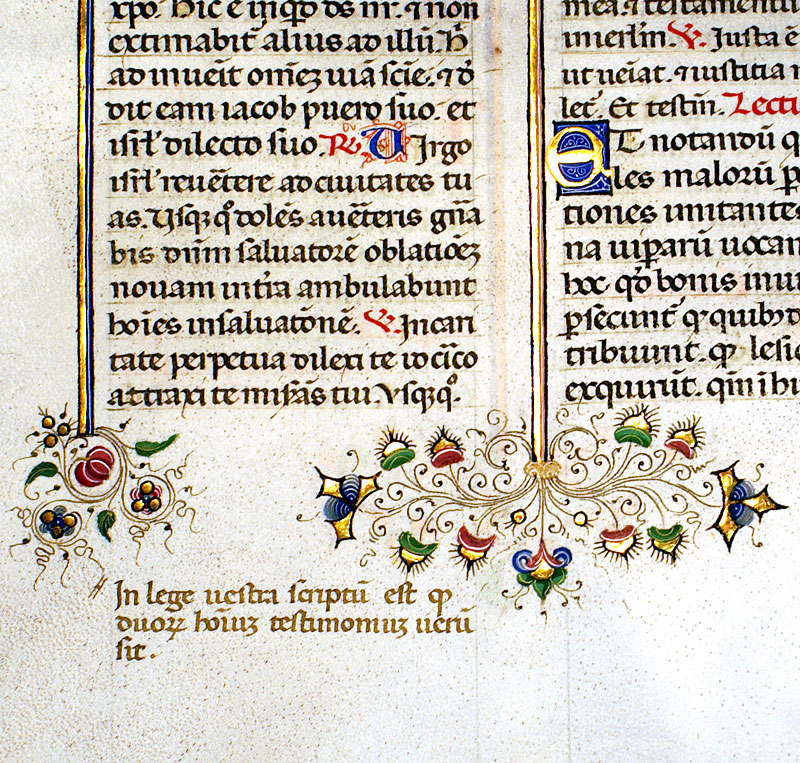 xp̄o. Hic ē in quo ds̄ nr̄. ⁊ non
extimabit̄ alius ad illū. H̄
ad inueīt omēꝫ uiā scīe. ⁊ đ
dit eam iacob puero suo. et
isrł dilecto suo. R̷ Uirgo
isrł reuētere ad ciuitates tu
as. Vsqꝫ qͦ dolēs auēteris gn̄a
bis dn̄m saluatorē oblatiōeꝫ
nouam in tr̄a ambulabunt
hoīes in saluatōnē. V̷ In cari
tate perpetua dilexi te iō cīco
attraxi te misās tui. Vsqꝫ qͦ.
In lege uestra scriptū est qꝫ
duoꝝ hoīuꝫ testimoniuꝫ uerū
sit.
mea. ⁊ testamentū
in ierłm. V̷ Justa ē
ut ueīat. ⁊ iustitia m
let̄. Et testm̄. Lecti
ET notandū q
les malorū p
tiones imitantes
na uiꝑarū uocan
hoc qđ bonis inui
ꝑsecunt̄ qꝫ quibꝫ d
tribuunt. qꝫ lesi
exquirūt. qm̄ i hu